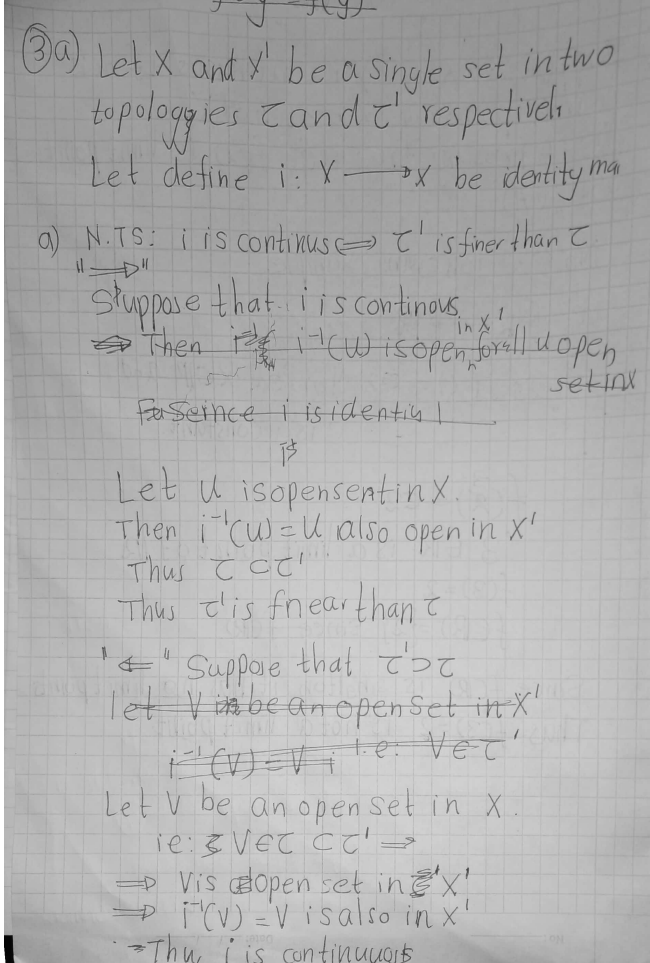 ③a) Let X and X' be a single set in two
topologgies τ and τ' respectively
Let define i: X' → X be identity ma
a) N.TS: i is continus ⟺ τ' is finer than τ
"⟹"
Suppose that i is continous
⟹ Then i⁻¹(U) is open in X' for all U open
set in X
Seince i is identiy
is
Let U is open sent in X.
Then i⁻¹(U) = U also open in X'
Thus τ ⊂ τ'
Thus τ' is fnear than τ
"⟸" Suppose that τ' ⊃ τ
let V be an open set in X'
i⁻¹(V) = V i.e: V ∈ τ'
Let V be an open set in X.
ie: V ∈ τ ⊂ τ' ⟹
⟹ V is open set in X'
⟹ i⁻¹(V) = V is also in X'
Thu, i is continuuois